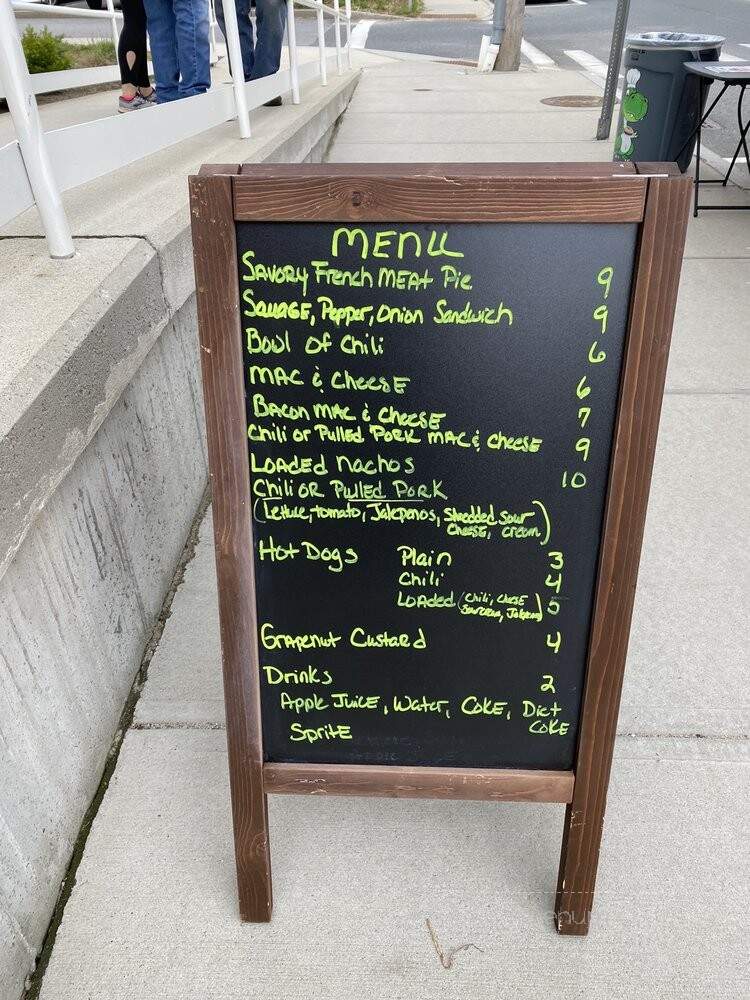 MENU
SAVORY French MEAT Pie 9
SAUSAGE, Pepper, Onion Sandwich 9
Bowl OF Chili 6
MAC & CHEESE 6
BACON MAC & CHEESE 7
Chili or Pulled PORK MAC & CHEESE 9
LOADED nachos 10
Chili OR Pulled Pork
(Lettuce, tomato, Jalepenos, Shredded Cheese, Sour cream)
Hot Dogs Plain 3
Chili 4
LOADED (Chili, Cheese 5
Sour cream,
Grapenut Custard 4
Drinks 2
Apple Juice, Water, COKE, Diet COKE
SpritE